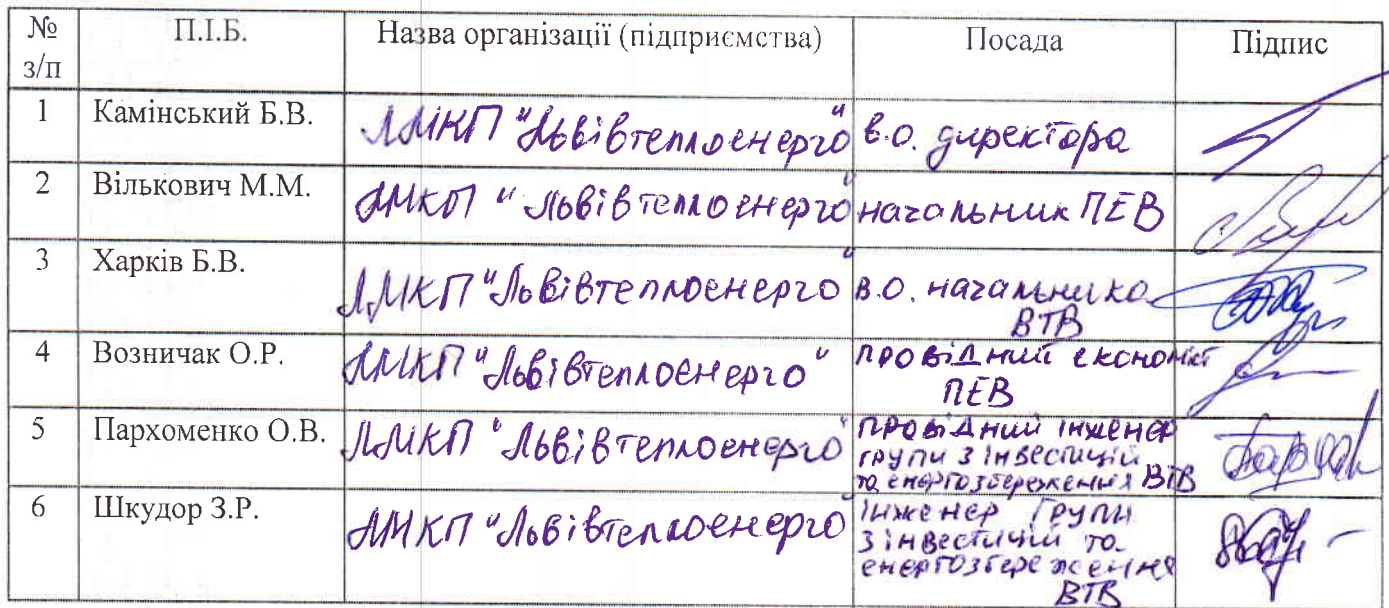 № з/п П.І.Б. Назва організації (підприємства) Посада Підпис
1 Камінський Б.В. ЛМКП "Львівтеплоенерго" в.о. директора
2 Вількович М.М. ЛМКП "Львівтеплоенерго" начальник ПЕВ
3 Харків Б.В. ЛМКП "Львівтеплоенерго" в.о. начальника
ВТВ
4 Возничак О.Р. ЛМКП "Львівтеплоенерго" провідний економіст
ПЕВ
5 Пархоменко О.В. ЛМКП "Львівтеплоенерго" провідний інженер
групи з інвестицій
та енергозбереження ВТВ
6 Шкудор З.Р. ЛМКП "Львівтеплоенерго" інженер групи
з інвестицій та
енергозбереження
ВТВ